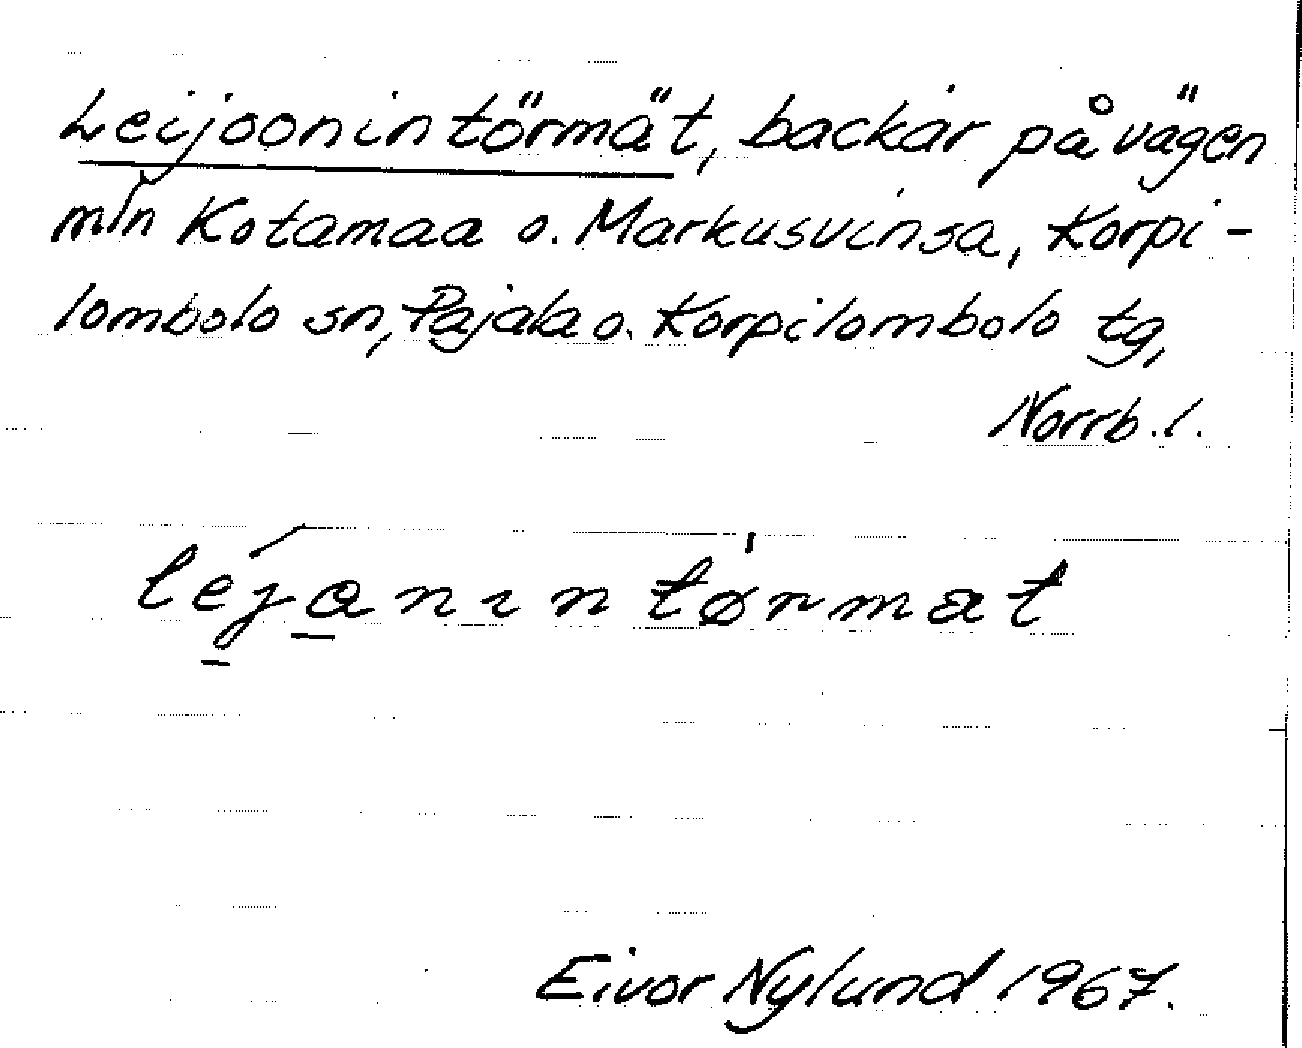 Leijoonintörmät, backar på vägen
mln Kotamaa o. Markusvinsa, Korpi-
lombolo sn, Pajala o. Korpilombolo tg,
Norrb. l.
Eivor Nylund 1967.